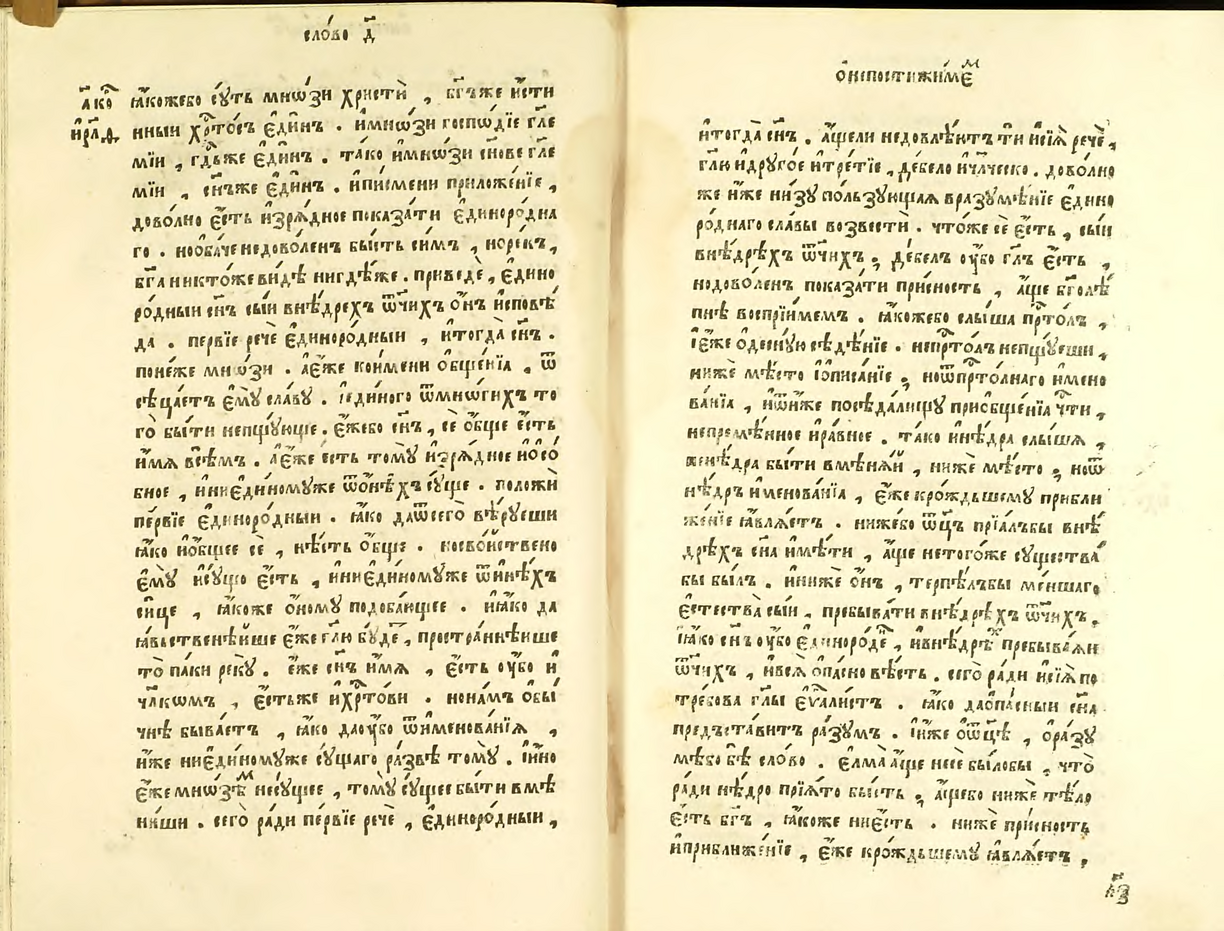 сло́во д҃
ꙗ҆́ко ꙗ҆́кожебо су́ть мно́ѕи христѝ , бг҃ъже и҆́сти
и҆рл҃д. нныи хрⷭ҇то́съ є҆ди́нъ . и҆мно́ѕи госпѡ́дїе гл҃е
мїи , гд҃ьже є҆ди́нъ . та́ко и҆мно́ѕи сн҃ове гл҃е
мїи , сн҃ъже є҆ди́нъ . и҆писмени приложе́нїе ,
дово́лно є҆́сть и҆зрѧ́дное показа́ти є҆диноро́дна
го . но ѻ҆ба́че недово́ленъ бы́сть си́мъ , норе́къ ,
бг҃а никто́же ви́дѣ нигдѣ́же . приведѐ , є҆дино
ро́дныи сн҃ъ сы́и внѣ́дрехъ ѿ́чихъ ѻ҆́нъ и҆сповѣ́
да . пе́рвїе речѐ є҆диноро́дныи , и҆тогда̀ сн҃ъ .
поне́же мно́ѕи . а҆є҆́же коимени ѻ҆бще́нїа , ѿ
сѣца́етъ є҆мꙋ̀ сла́вꙋ . і҆еди́ного ѿмно́гихъ то
го̀ бы́ти непщꙋ́юще . є҆́жебо сн҃ъ , се ѻ҆́бще є҆́сть
и҆́мѧ всѣ́мъ . а҆є҆́же есть томꙋ̀ и҆зрѧ́дное и҆ѻсо́
бное , и҆ниеди́номꙋже ѿѻ҆нѣ́хъ сꙋ́ще . положѝ
пе́рвїе є҆диноро́дныи . ꙗ҆́ко даѿсего̀ вѣ́рꙋеши
ꙗ҆́ко и҆ѻ́бщее сѐ , нѣ́сть ѻ҆́бще . носво́йствено
є҆мꙋ̀ и҆сꙋ́що є҆́сть , и҆ниеди́номꙋже ѿи҆нѣ́хъ
си́це , ꙗ҆́коже ѻ҆́номꙋ подоба́ющее . и҆ꙗ҆́ко да
ꙗ҆́вьственѣ́йше є҆́же гл҃ю бꙋ́дⷷ , простра́ннѣише
то̀ па́ки рекꙋ̀ . є҆́же сн҃ъ и҆́мѧ , є҆́сть ᲂу҆́бо и҆
чл҃кѡмъ , є҆́стьже и҆хрⷭ҇то́ви . нона́мъ ѻ҆бы́
чнѣ быва́етъ , ꙗ҆́ко даᲂу҆́бо ѿименова́нїѧ ,
и҆́же ниеди́номꙋже сꙋ́щаго ра́звѣ томꙋ̀ . і҆и҆но
є҆́же мно́ѕѣⷨ несꙋ́щее , томꙋ̀ сꙋ́щее бы́ти вмѣ
ни́ши . сего̀ ра́ди пе́рвїе речѐ , є҆диноро́дныи ,
ѻ҆непостижи́мѣⷨ
и҆тогда̀ сн҃ъ . а҆́щели недовлѣ́етъ ти и҆сїѧ̀ речѐ ,
гл҃ю и҆дрꙋго́е и҆тре́тїе , де́бело и҆чл҃ческо . дово́лно
же и҆́же ни́зꙋ по́лзꙋющаѧ вразꙋмѣ́нїе є҆дино
ро́днаго сла́вы возвестѝ . что́же сѐ є҆́сть , сы́и
внѣ́дрѣхъ ѿ́чихъ , де́белъ ᲂу҆́бо гл҃ъ є҆́сть ,
нодово́ленъ показа́ти при́сность , а҆́ще бг҃олѣ́
пнѣ воспрїи́мемъ . ꙗ҆́кожебо слы́ша прⷭ҇то́лъ ,
і҆є҆́же ѻ҆деснꙋ́ю сѣдѣ́нїе . непрⷭ҇то́лъ непщꙋ́еши ,
нижѐ мѣ́сто і҆ѻписа́нїе , ноѿпрⷭ҇то́лнаго имено
ва́нїа , и҆ѿи҆́же посѣда́лищꙋ приѻбще́нїа чⷭ҇ти ,
непремѣ́нное и҆ра́вное . та́ко и҆нѣ́дра слы́шѧ ,
ненѣ́дра бы́ти вмѣнѧ́й , нижѐ мѣ́сто , ноѿ
нѣ́дръ и҆менова́нїа , є҆́же кро́ждьшемꙋ прибли
же́нїе ꙗ҆влѧ́етъ . ни́жебо ѻ҆ц҃ъ прїа́лъбы внѣ́
дрѣхъ сн҃а и҆мѣ́ти , а҆́ще нетого́же сꙋщества̀
бы бы́лъ . и҆нижѐ ѻ҆́нъ , терпѣ́лъбы ме́ншаго
є҆стества̀ сы́и , пребыва́ти внѣ́дрѣхъ ѿ́чихъ .
ꙗ҆́ко сн҃ъ ᲂу҆́бо є҆диноро́дⷩ҇ , и҆внѣ́дрѣⷯ пребыва́ѧи
ѿ́чихъ , и҆всѧ̀ ѻ҆па́сно вѣ́сть . сего̀ ра́ди и҆сїѧ̀ по
тре́бова гл҃ы є҆ѵⷢ҇али́стъ . ꙗ҆́ко даѻпа́сныи сн҃а
предъста́витъ ра́зꙋмъ . і҆и҆́же ѻ҆ѻц҃ѣ , ѻ҆ра́зꙋ
мѣбо бѣ̀ сло́во . є҆лма̀ а҆́ще несѐ бы́лобы , что̀
ра́ди нѣ́дро прїѧ́то бы́сть , а҆́щебо нижѐ тѣ́ло
є҆́сть бг҃ъ , ꙗ҆́коже ниє҆́сть . нижѐ при́сность
и҆приближе́нїе , є҆́же кро́ждьшемꙋ ꙗ҆влѧ́етъ ,
н҃з